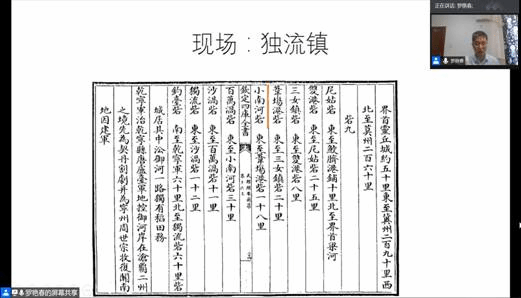 正在讲话: 罗艳春;
罗艳春
现场：独流镇
界首靈丘城約五十里東至冀州二百九十里西
北至莫州二百六十里
砦九
尼姑砦 東至 港鋪十里北至界首梁河
雙港砦 東至尼姑砦二十五里
三女鎮砦 東至雙港砦八里
葦場港砦 東至三女鎮砦二十里
小南河砦 東至葦場港砦一十八里
欽定四庫全書
百萬渦砦 東至小南河砦三十里
沙渦砦 東至百萬渦砦十一里
獨流砦 東至沙渦砦一十二里
釣臺砦 南至乾寧軍六十里北至獨流砦六十里
城居其中 御河一路獨有稻田務
乾寧軍治乾寧縣 臺軍地控御河岸在滄霸二州
之境先為契丹割 并為寧州周世宗收復關南
地因建軍
罗艳春的屏幕共享